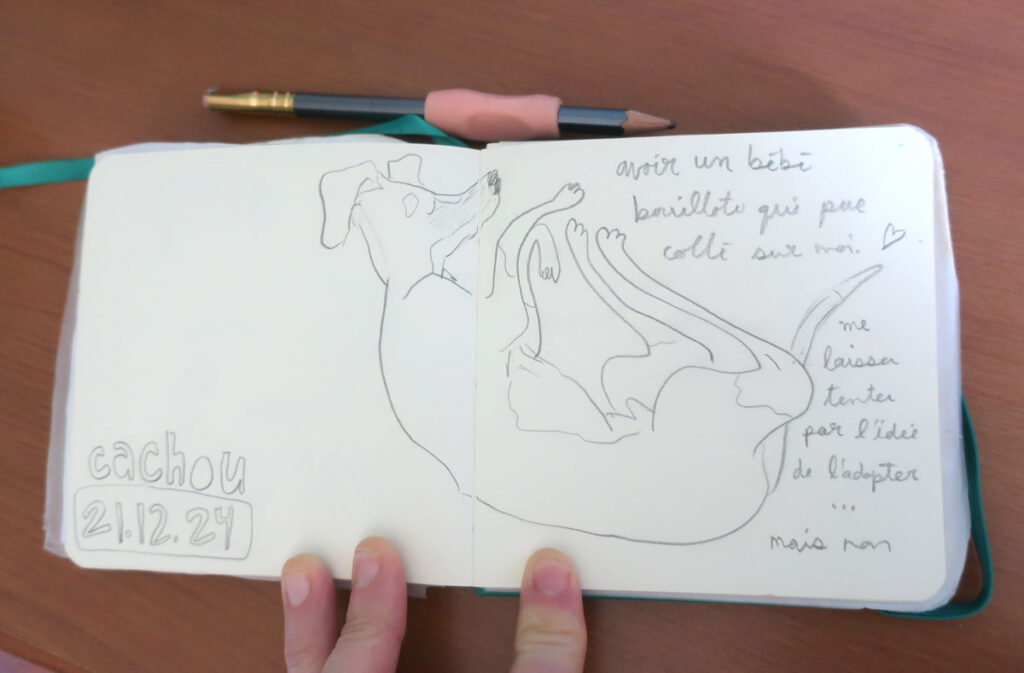 cachou
21.12.24
avoir un bébé
bouillote qui pue
collé sur moi. ♡
me
laisser
tenter
par l'idée
de l'adopter
...
mais non